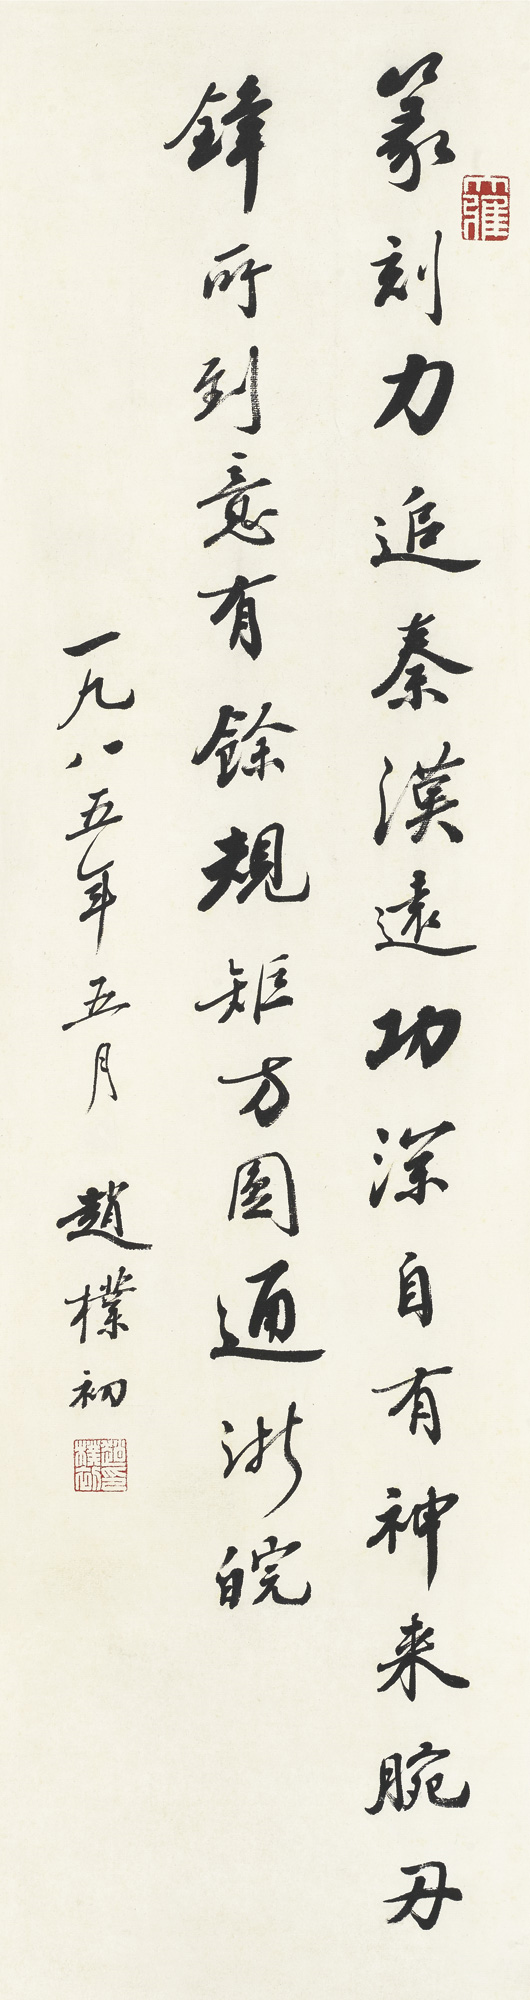 篆刻力追秦漢遠功深自有神来腕刃
鋒所到意有餘規矩方圓通浙皖
一九八五年五月 趙樸初
趙印樸初